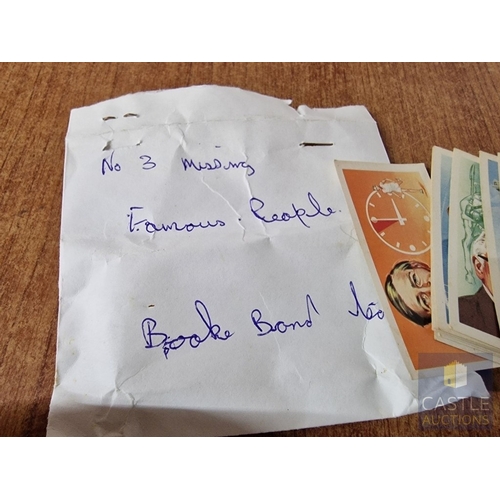 No 3 missing
Famous People.
Brooke Bond
CASTLE
AUCTIONS